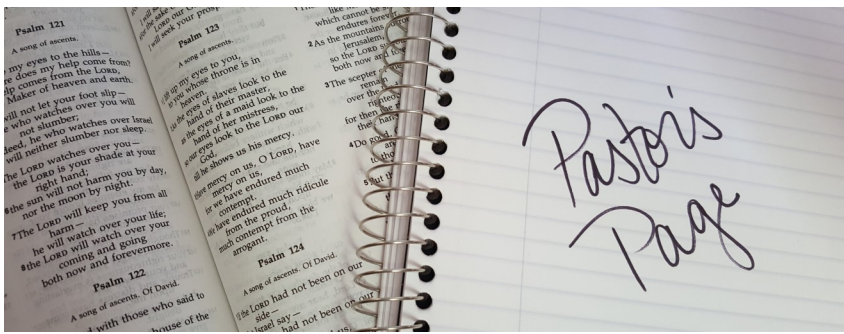 Psalm 121
A song of ascents.
my eyes to the hills—
does my help come from?
comes from the LORD,
Maker of heaven and earth.
will not let your foot slip—
who watches over you will
not slumber;
indeed, he who watches over Israel
will neither slumber nor sleep.
The LORD watches over you—
the LORD is your shade at your
right hand;
the sun will not harm you by day,
nor the moon by night.
7The LORD will keep you from all
harm—
he will watch over your life;
8the LORD will watch over your
coming and going
both now and forevermore.
Psalm 122
A song of ascents. Of David.
with those who said to
house of the
I will seek your
Psalm 123
A song of ascents.
up my eyes to you,
you whose throne is in
heaven.
the eyes of slaves look to the
hand of their master,
as the eyes of a maid look to the
hand of her mistress,
so our eyes look to the LORD our
God,
till he shows us his mercy.
mercy on us, O LORD, have
mercy on us,
for we have endured much
contempt.
We have endured much ridicule
from the proud,
much contempt from the
arrogant.
Psalm 124
A song of ascents. Of David.
the LORD had not been on our
side—
Israel say—
had not been on our
which cannot be
endures forever
2As the mountains
Jerusalem,
so the LORD
both now and
3The scepter
remain
over the
for then the
4Do good,
Pastor's
Page